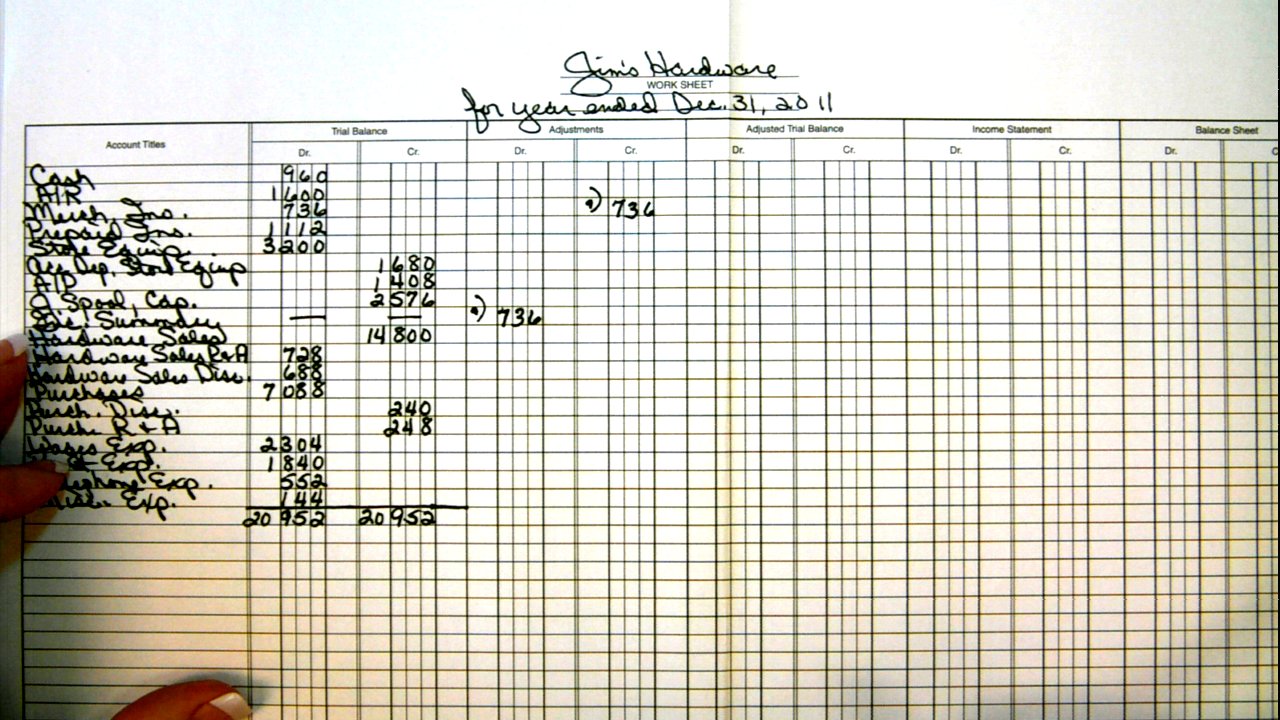 Jim's Hardware
WORK SHEET
for year ended Dec. 31, 2011
Account Titles Trial Balance Adjustments Adjusted Trial Balance Income Statement Balance Sheet
Dr. Cr. Dr. Cr. Dr. Cr. Dr. Cr. Dr. C
Cash 960
A/R 1600
Merch. Inv. 736 a) 736
Prepaid Ins. 1112
Store Equip. 3200
Acc. Dep. Store Equip 1680
A/P 1408
J. Spool, Cap. 2576
Inc. Summary — — a) 736
Hardware Sales 14800
Hardware Sales R+A 728
Hardware Sales Disc. 688
Purchases 7088
Purch. Disc. 240
Purch. R+A 248
Wages Exp. 2304
Exp. 1840
ephone Exp. 552
Misc. Exp. 144
20952 20952